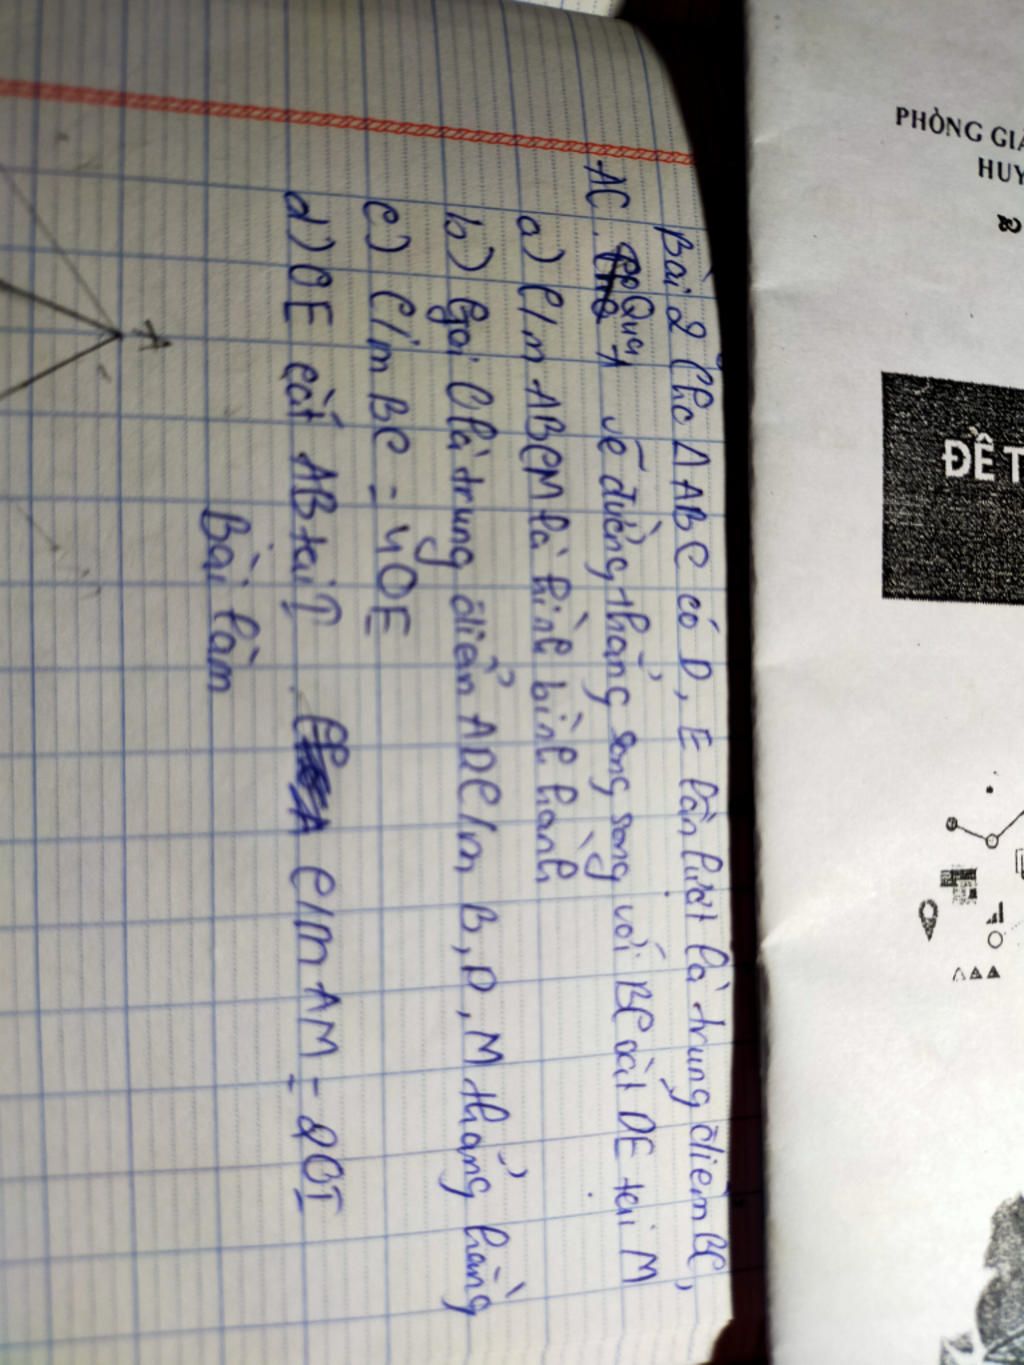 Bài 2 Cho Δ ABC có D, E lần lượt là trung điểm BC,
AC. Qua A vẽ đường thẳng song song với BC cắt DE tại M
a) C/m ABCM là hình bình hành
b) Gọi O là trung điểm AD C/m B, O, M thẳng hàng
c) C/m BC = 4OE
d) OE cắt AB tại I. C/m AM = 2OI
Bài làm
A
PHÒNG GIÁ
HUY
ĐỀ T